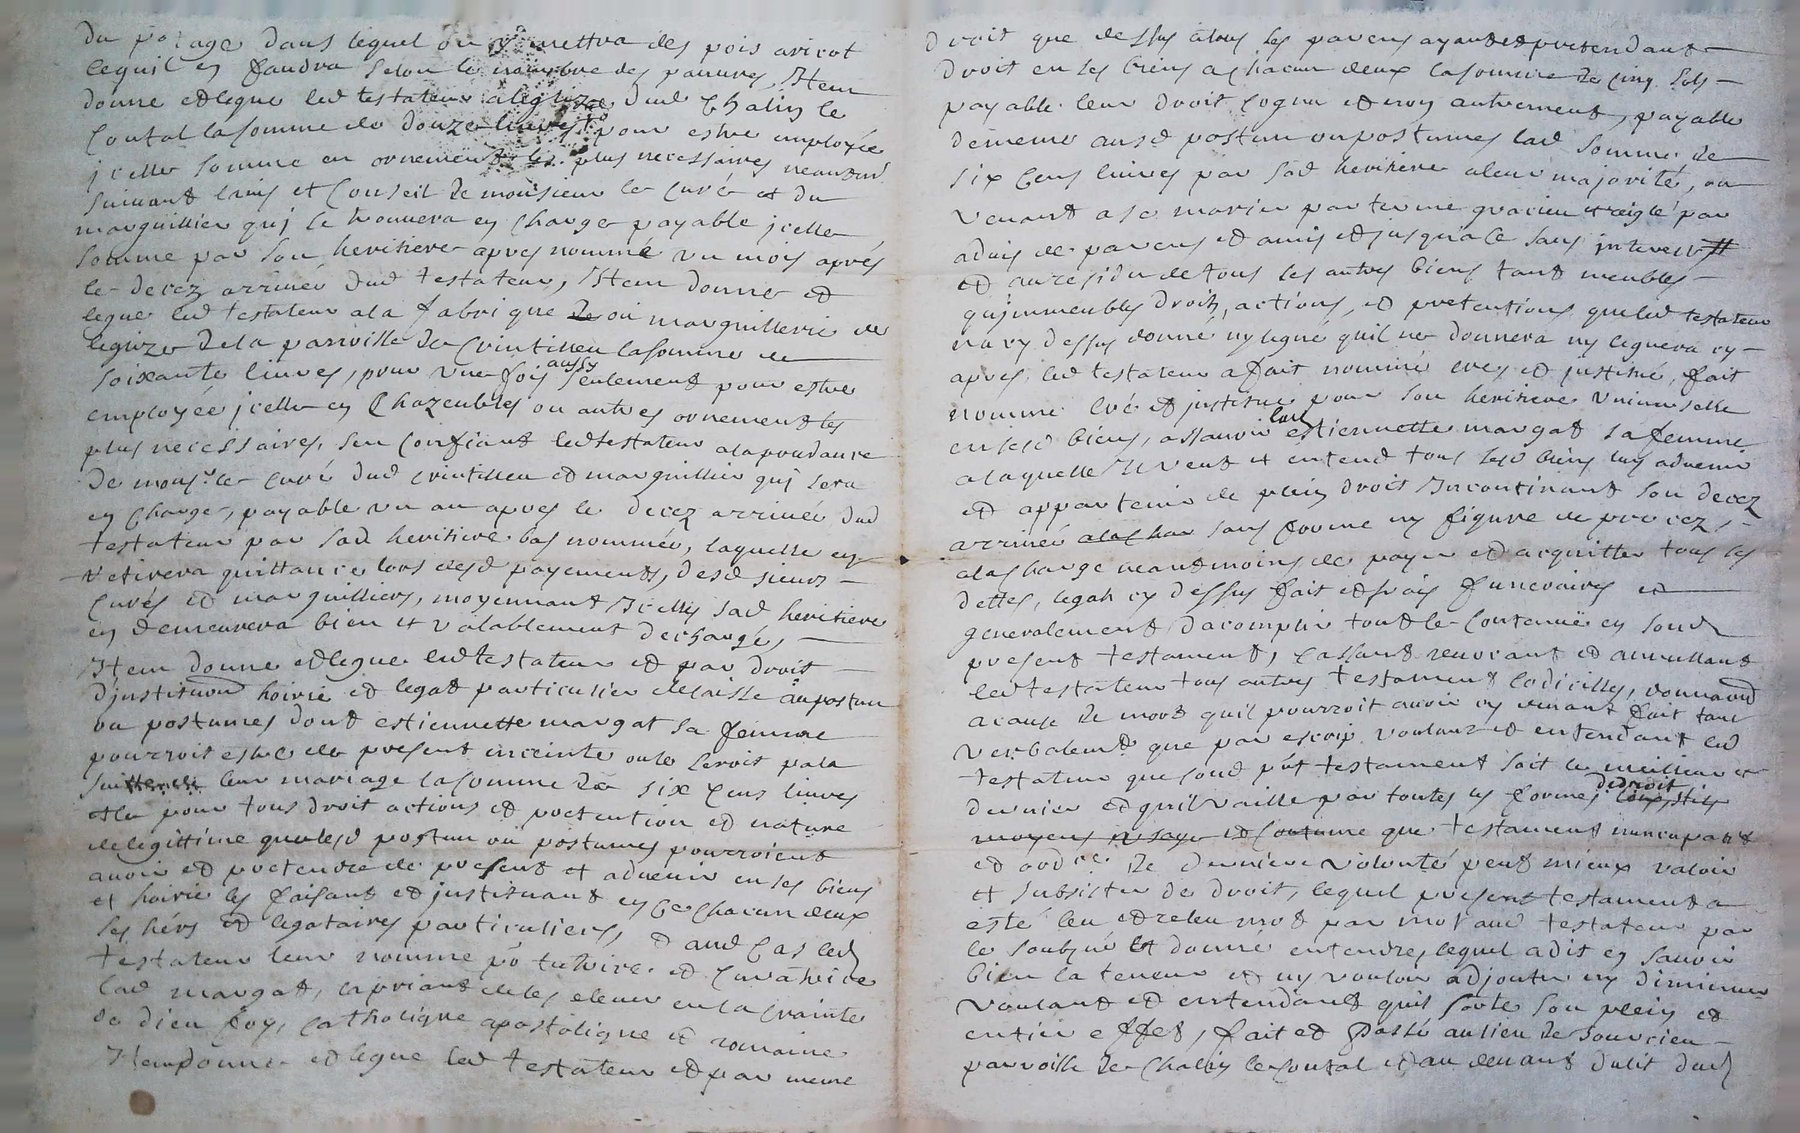 du potage dans lequel on y mettra des pois aricot
ce quil en faudra selon le nombre des pauvres, Item
donne et legue led testateur a leglize dud Chalin le
Contal la somme de douze livres pour estre employée
jcelle somme en ornements les plus necessaires neantm
suivant lavis et Conseil de monsieur le curé et du
marguillier quj se trouvera en charge payable jcelle
somme par son heritiere apres nommée un mois aprés
le decez arrivée dud testateur, Item donne et
legue led testateur a la fabrique de ou marguillerie de
leglize de la parroisse de Crintilleu la somme de
soixante livres, pour une fois aussy seulement pour estre
employée jcelle en Chazeubles ou autres ornements les
plus necessaires, sen confiant led testateur a la prudance
de monsr. le curé dud crintilleu et marguillier quj sera
en charge, payable un an apres le decez arrivée dud
testateur par sad heritiere bas nommée, laquelle en
retirera quittance lors desd payements, desd sieurs
Curés et marguilliers, moyennant Jcelles sad heritiere
en demeurera bien et valablement dechargé,
Item donne et legue led testateur et par droit
djnstitution hoirie et legat particulier delaisse au postum
ou postumes dont estiennette margat sa femme
pourroit estre de present inceinte ou le seroit par la
suitte de leur mariage la somme de six cens livres
et la pour tous droit actions et pretention et nature
de legittime que lesd postum ou postumes pourroient
avoir et pretendre de present et advenir en ses biens
et hoirie les faisant et jnstituant en ce chacun deux
ses hérs et legataires particuliers, et aud cas led
testateur leur nomme po tutrice et Curatrice
lad margat, la priant de les elever en la crainte
de dieu foy, catholique apostolique et romaine
Item donne et legue led testateur et par meme
droit que dessus a tous ses parens ayants et pretendants
droit en ses biens a chacun deux la somme de cinq sols
payable leur droit cognu et non autrement, payable
de meme ausd postum ou postumes lad somme de
six cens livres par sad heritiere a leur majorité, ou
venant a se marier par terme gracieu et reiglé par
advis de parens et amis et jusqua ce sans jnterests
et au residu de tous ses autres biens tant meubles
qujmmeubles droits, actions, et pretentions que led testateur
na cy dessus donné ny legué quil ne donnera ny leguera cy
apres, led testateur a fait nommé creé et jnstitué, fait
nomme creé et jnstitue pour son heritiere universelle
en sesd biens, assavoir lad estiennette margat sa femme
a laquelle Il veut et entend tous sesd biens luy advenir
et appartenir de plein droit Incontinant son decez
arrivée a la char sans forme ny figure de procez,
a la charge neantmoins de payer et acquitter tous ses
dettes, legats cy dessus fait et frais funeraires et
generalement dacomplir tout le Contenue en sond
present testament, cassant revocant et annullant
led testateur tous autres testament codicilles, donnaons
a cause de mort quil pourroit avoir cy devant fait tant
verbalemt que par escrip voulant et entendant led
testateur que sond pnt testament soit le meilleur et
dernier et quil vaille par toutes les formes de droit loix, stils
moyens usage et Coutume que testament nuncupatif
et ordce de derniere volonté peut mieux valoir
et subsister de droit, lequel present testament a
esté leu et releu mot par mot aud testateur par
le soubzné et donné entendre, lequel a dit en savoir
bien la teneur et ny vouloir adjouter ny diminuer
voulant et entendant quil sorte son plein et
entier effet, fait et passé au lieu de Souvrieu
parroisse de Chalin le Contal et au devant dulit dud